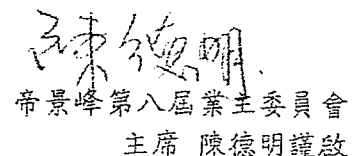 陳德明
帝景峰第八屆業主委員會
主席 陳德明謹啟